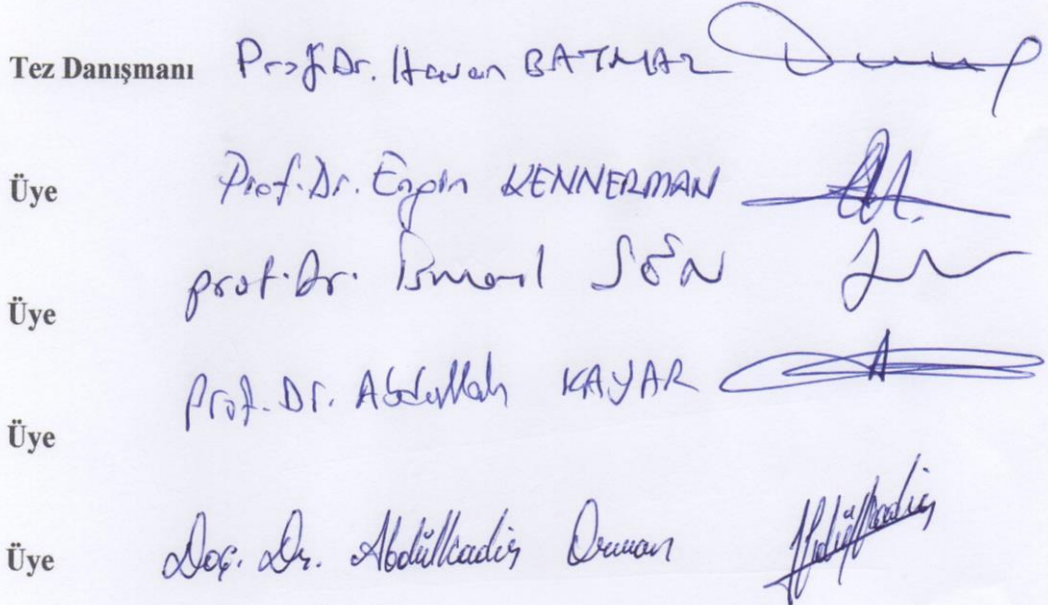 Tez Danışmanı Prof.Dr. Hasan BATMAZ
Üye Prof.Dr. Engin KENNERMAN
Üye prof.Dr. İsmail ŞEN
Üye Prof.Dr. Abdullah KAYAR
Üye Doç. Dr. Abdülkadir Orman